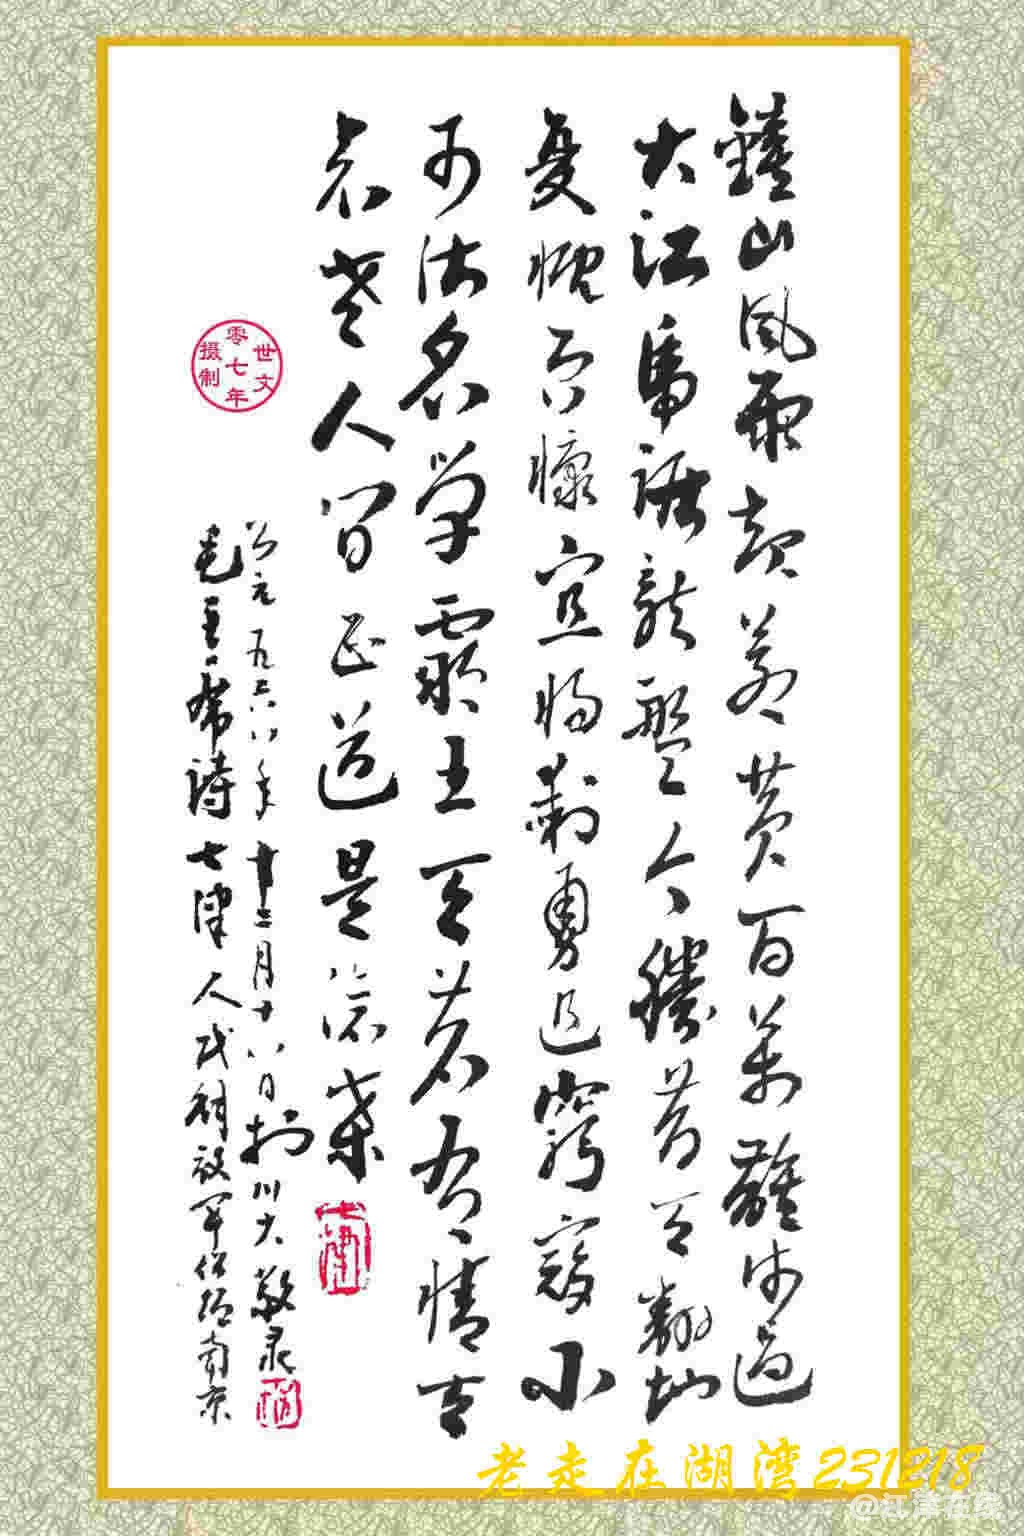 鍾山風雨起蒼黃百萬雄師過
大江虎踞龍盤今勝昔天翻地
覆慨而慷宜將剩勇追窮寇不
可沽名學霸王天若有情天
亦老人間正道是滄桑
公元一九六八年十二月十八日於川大敬录
毛主席詩七律人民解放軍佔領南京
世文
零七年
摄制
老走在湖湾231218